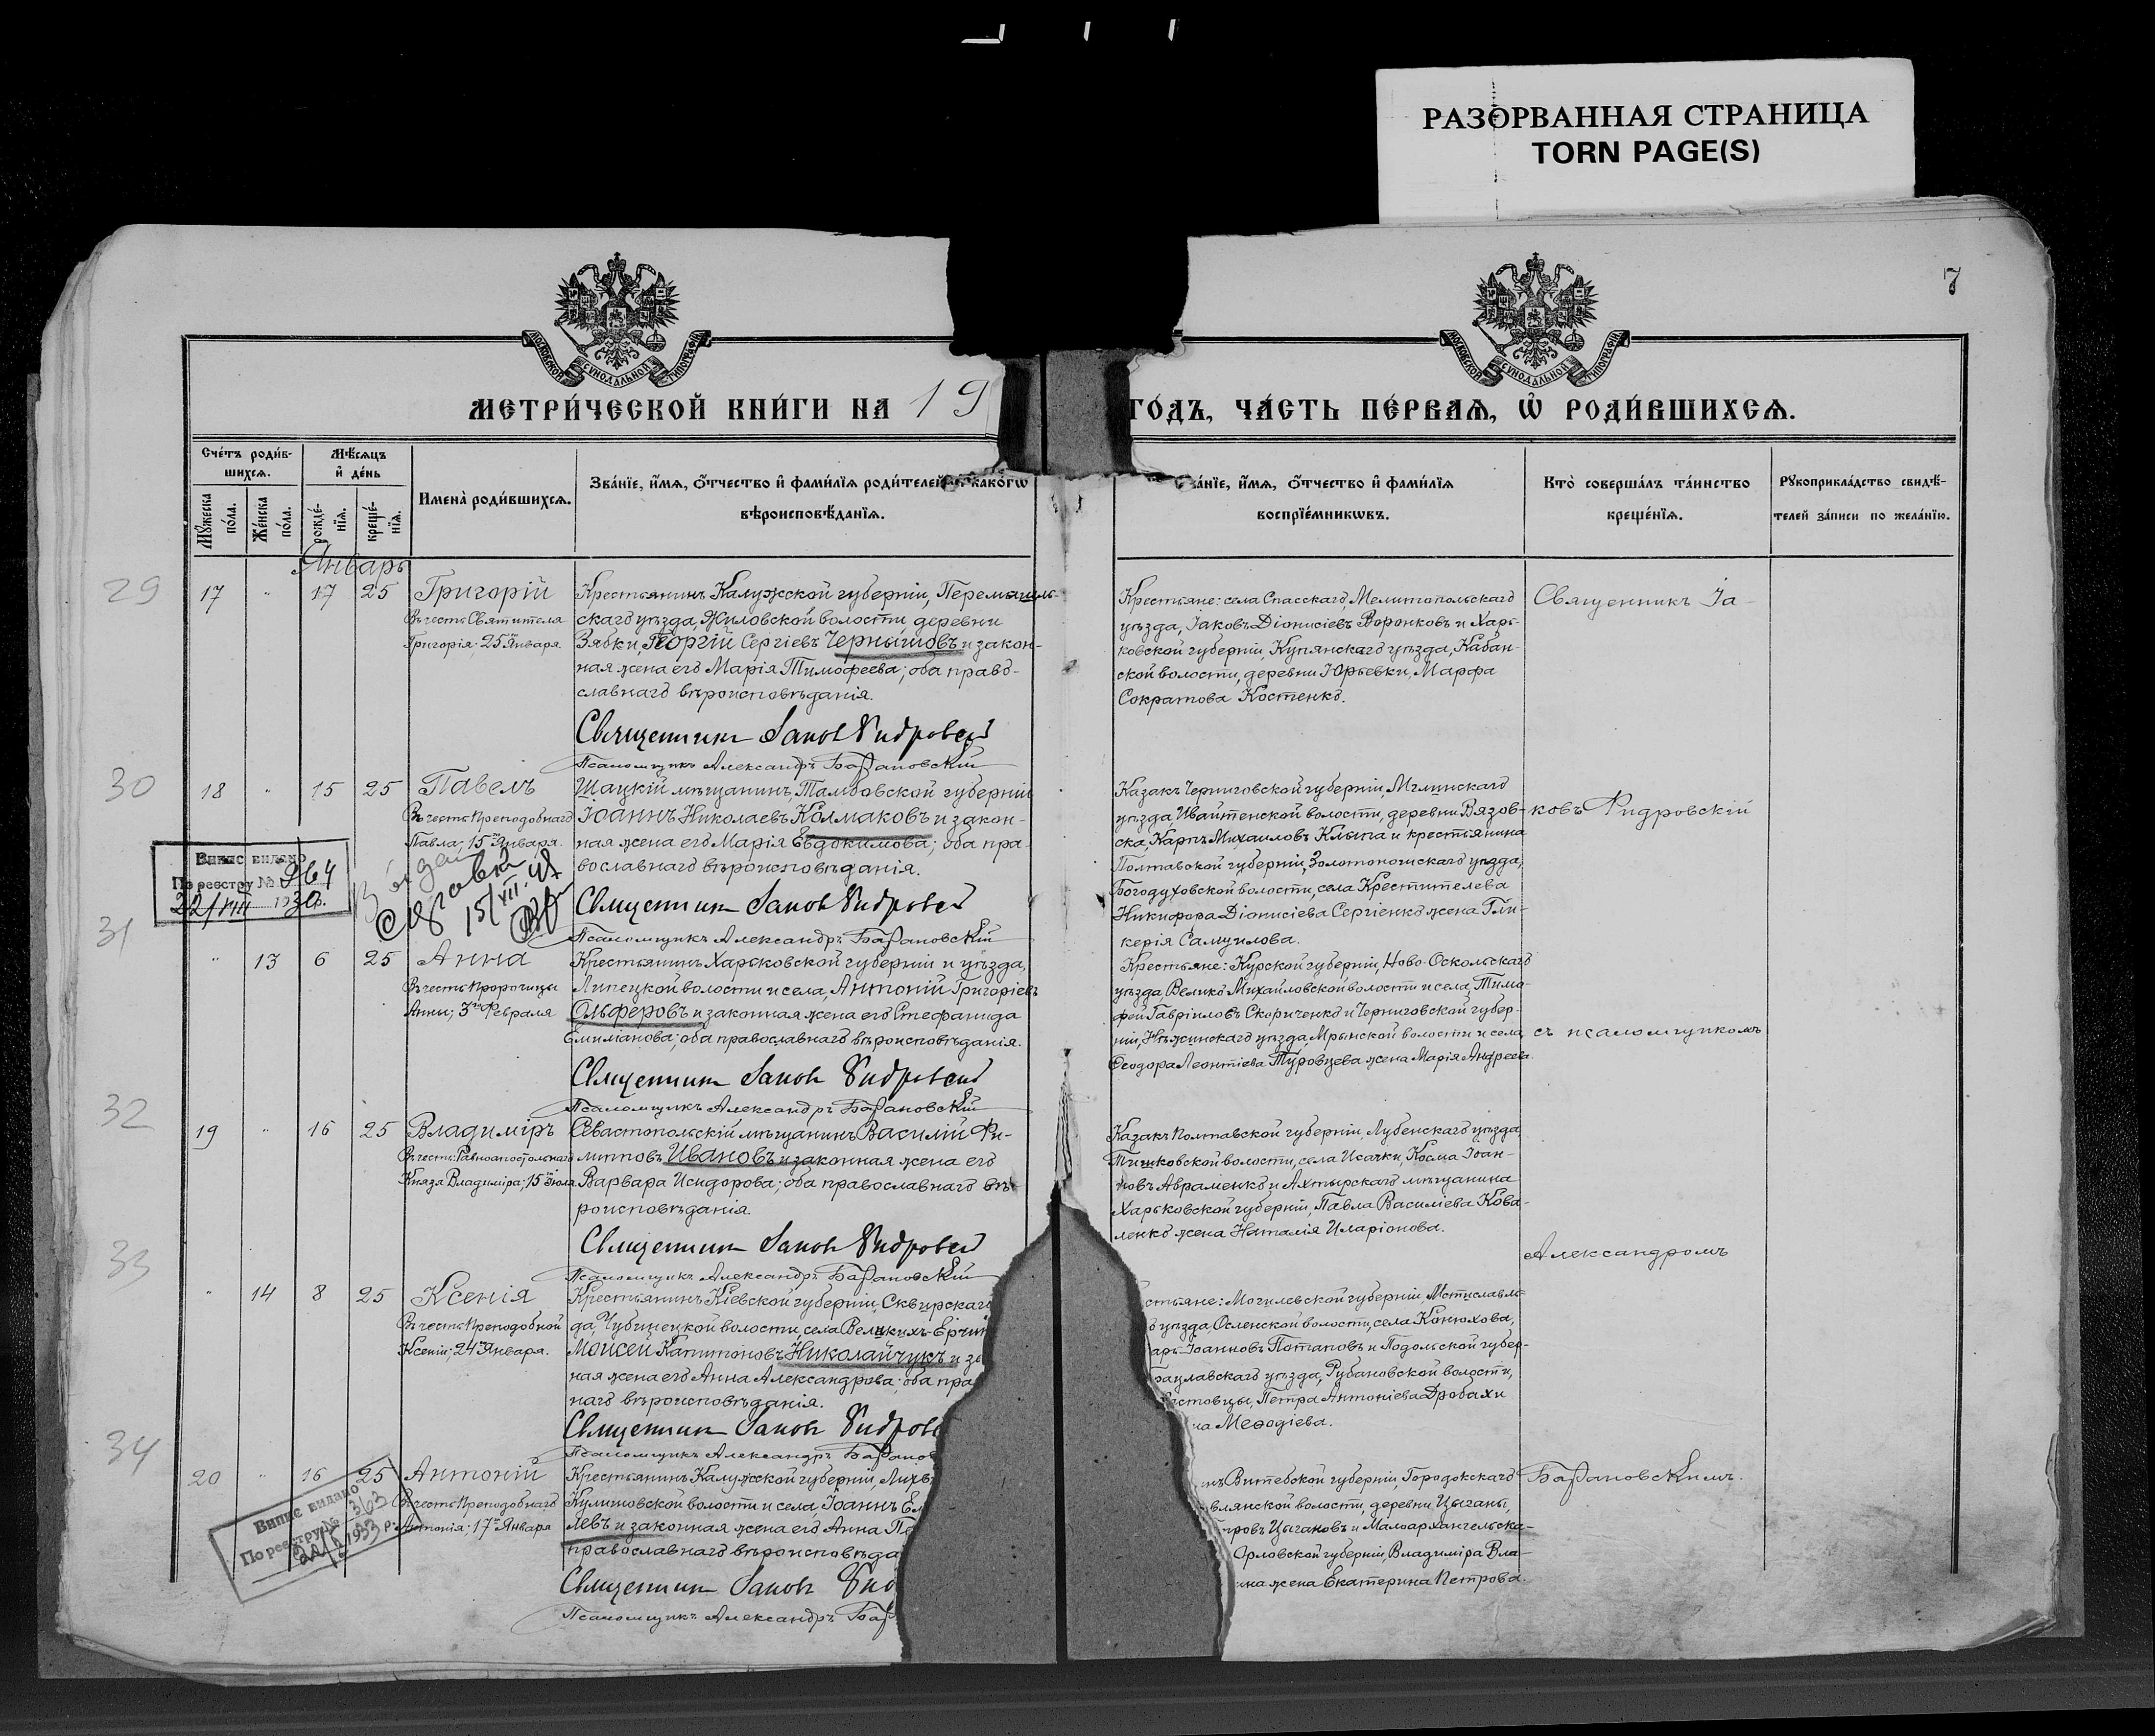 РАЗОРВАННАЯ СТРАНИЦА
TORN PAGE(S)
7
МОСКОВСКОЙ СУНОДАЛЬНОЙ ТИПОГРАФІИ
МОСКОВСКОЙ СУНОДАЛЬНОЙ ТИПОГРАФІИ
МЕТРИ́ЧЕСКОЙ КНИ́ГИ НА 19
ГО́ДЪ, ЧА́СТЬ ПЕ́РВАЯ, Ѡ РОДИ́ВШИХСЯ.
Сче́тъ роди́в-
шихся.
Мѣ́сяцъ
и де́нь
Мꙋжеска
по́ла.
Же́нска
по́ла.
рожде́-
нїя.
креще́-
нїя.
Имена̀ роди́вшихся.
Зва́нїе, и́мя, ѻ́тчество и фами́лїя роди́телей како́гѡ
вѣроисповѣ́данїя.
зва́нїе, и́мя, ѻ́тчество и фами́лїя
воспрїе́мникѡвъ.
Кто̀ соверша́лъ та́инство
креще́нїя.
Рꙋкоприкла́дство свидѣ́-
телей за́писи по жела́нїю.
Январь
29
17 " 17 25
Григорій
Въ честь Святителя
Григорія; 25го Января
Крестьянинъ Калужской губерніи, Перемышль-
скаго уѣзда, Жиловской волости деревни
Зябки, Георгій Сергіевъ Чернышовъ и закон-
ная жена его Марія Тимофеева; оба право-
славнаго вѣроисповѣданія.
Священникъ Іаковъ Ѳидровскій
Псаломщикъ Александръ Барановскій
Крестьяне: села Спасскаго, Мелитопольскаго
уѣзда, Іаковъ Діонисіевъ Воронковъ и Харь-
ковской губерніи, Купянскаго уѣзда, Кабан-
ской волости, деревни Юрьевки, Марфа
Сократова Костенко.
Священникъ Іа-
30
18 " 15 25
Павелъ
Въ честь Преподобнаго
Павла; 15го Января.
Шацкій мѣщанинъ, Тамбовской губерніи
Іоаннъ Николаевъ Колмаковъ и закон-
ная жена его Марія Евдокимова; оба пра-
вославнаго вѣроисповѣданія.
Священникъ Іаковъ Ѳидровскій
Псаломщикъ Александръ Барановскій
Казакъ Черниговской губерніи, Мглинскаго
уѣзда, Ивайтенской волости, деревни Вязов-
ска, Карпъ Михаиловъ Клыпа и крестьянина
Полтавской губерніи, Золотоношскаго уѣзда,
Богодуховской волости, села Крестителева
Никифора Діонисіева Сергіенко жена Гли-
керія Самуилова.
ковъ Ѳидровскій
Випис видано
По реєстру № 964
22/VIII 1930р.
15/VII
31
" 13 6 25
Анна
Въ честь Пророчицы
Анны; 3го Февраля
Крестьянинъ Харьковской губерніи и уѣзда,
Липецкой волости и села, Антоній Григоріевъ
Ольферовъ и законная жена его Стефанида
Емиліанова; оба православнаго вѣроисповѣданія.
Священникъ Іаковъ Ѳидровскій
Псаломщикъ Александръ Барановскій
Крестьяне: Курской губерніи, Ново-Оскольскаго
уѣзда, Велико Михайловской волости и села, Тимо-
фей Гавріиловъ Скориченко и Черниговской губер-
ніи, Нѣжинскаго уѣзда, Мрынской волости и села,
Ѳеодора Леонтіева Туровцева жена Марія Андреева.
съ псаломщикомъ
32
19 " 16 25
Владиміръ
Въ честь Равноапостольнаго
Князя Владиміра; 15го Іюля
Севастопольскій мѣщанинъ Василій Фи-
липповъ Ивановъ и законная жена его
Варвара Исидорова; оба православнаго вѣ-
роисповѣданія.
Священникъ Іаковъ Ѳидровскій
Псаломщикъ Александръ Барановскій
Казакъ Полтавской губерніи, Лубенскаго уѣзда,
Тишковской волости, села Исачки, Косма Іоан-
новъ Авраменко и Ахтырскаго мѣщанина
Харьковской губерніи, Павла Василіева Кова-
ленко жена Наталія Иларіонова.
Александромъ
33
" 14 8 25
Ксенія
Въ честь Преподобной
Ксеніи; 24го Января.
Крестьянинъ Кіевской губерніи, Сквирскаго
да, Чубинецкой волости, села Великихъ-Ерчи
Моисей Капитоновъ Николайчукъ и за
ная жена его Анна Александрова; оба пра
наго вѣроисповѣданія.
Священникъ Іаковъ Ѳидров
Псаломщикъ Александръ Баранов
стьяне: Могилевской губерніи, Мстиславль-
уѣзда, Осленской волости, села Конюхова,
арь Іоанновъ Потаповъ и Подольской губер-
рацлавскаго уѣзда, Рубановской волости,
стовцы, Петра Антоніева Дробахи
на Меѳодіева.
34
20 " 16 25
Антоній
Въ честь Преподобнаго
Антонія; 17го Января
Крестьянинъ Калужской губерніи, Лихв
Кулишовской волости и села, Іоаннъ Ем
левъ и законная жена его Анна По
православнаго вѣроисповѣда
Священникъ Іаковъ Ѳид
Псаломщикъ Александръ Бар
нъ Витебской губерніи, Городокскаго
влянской волости, деревни Цыганы,
тровъ Цыгановъ и Малоархангельска-
Орловской губерніи, Владиміра Вла-
ина жена Екатерина Петрова.
Барановскимъ.
Випис видано
По реєстру № 363
1933 р.